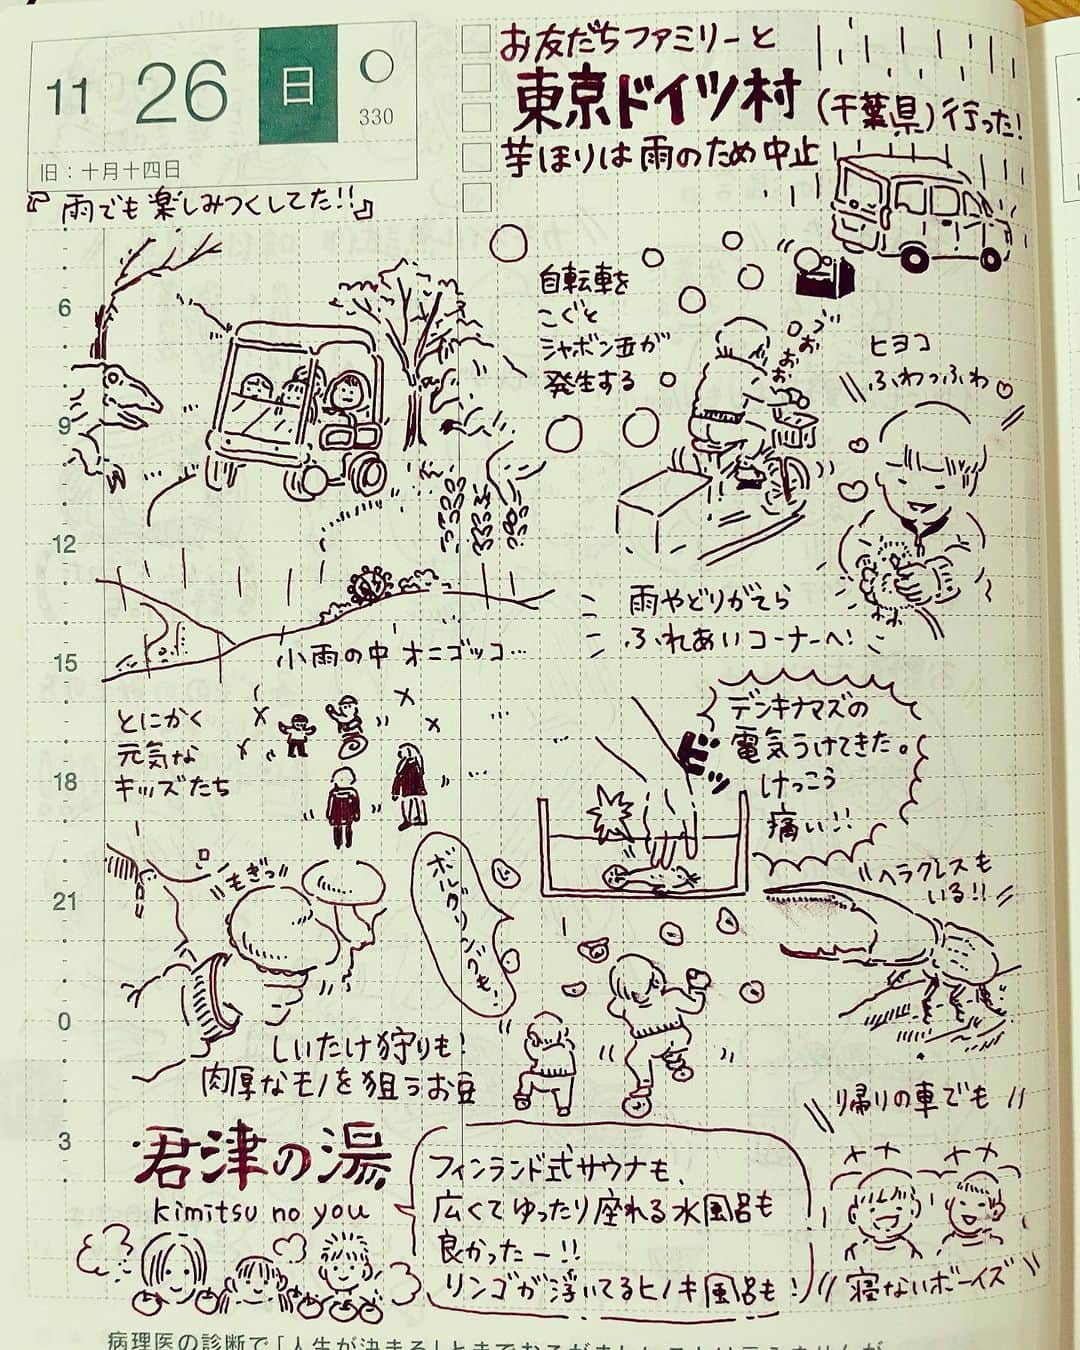 11 26 日
330
旧：十月十四日
お友だちファミリーと
東京ドイツ村
(千葉県)行った!
芋ほりは雨のため中止
『雨でも楽しみつくしてた!!』
6
9
12
15
18
21
0
3
自転車を
こぐと
シャボン玉が
発生する
おおおお
ヒヨコ
ふわっふわ♡
雨やどりがてら
ふれあいコーナーへ!
小雨の中オニゴッコ…
とにかく
元気な
キッズたち
デンキナマズの
電気うけてきた。
けっこう
痛い!!
ビッ
ヘラクレスも
いる!!
もぎっ
ボルダリングも!
しいたけ狩りも!
肉厚なモノを狙うお豆
君津の湯
kimitsu no you
フィンランド式サウナも、
広くてゆったり座れる水風呂も
良かったー!!
リンゴが浮いてるヒノキ風呂も!
帰りの車でも
寝ないボーイズ